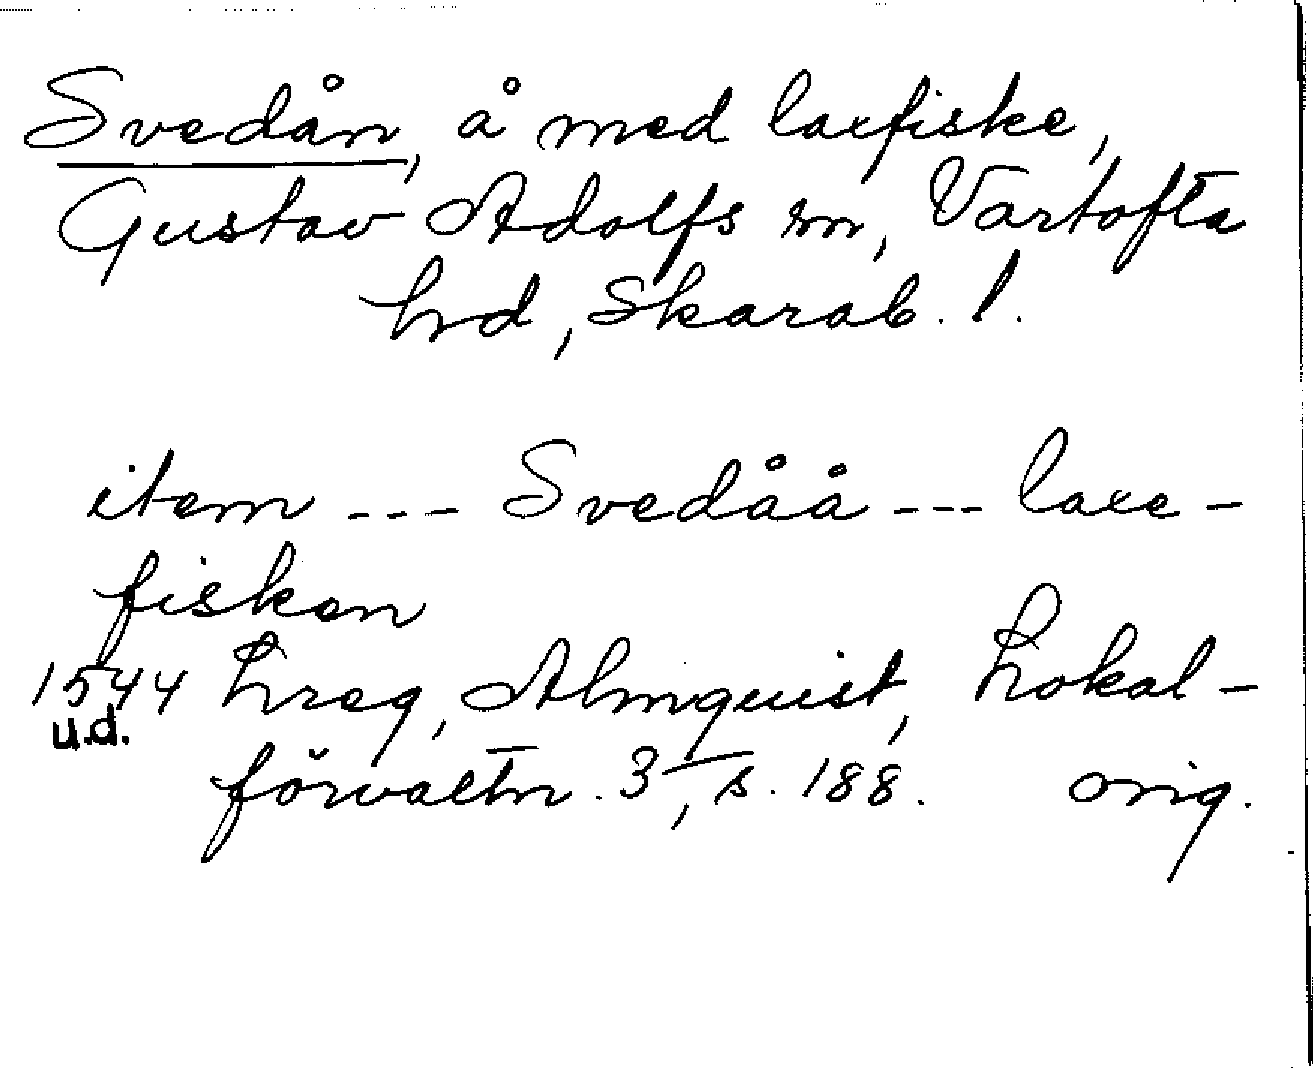 Svedån, å med laxfiske,
Gustav Adolfs sn, Vartofta
hd, Skarab. l.
item --- Svedåå --- laxe-
fisken
1544 Lreg, Almquist, Lokal-
u.d.
förvaltn. 3, s. 188. orig.